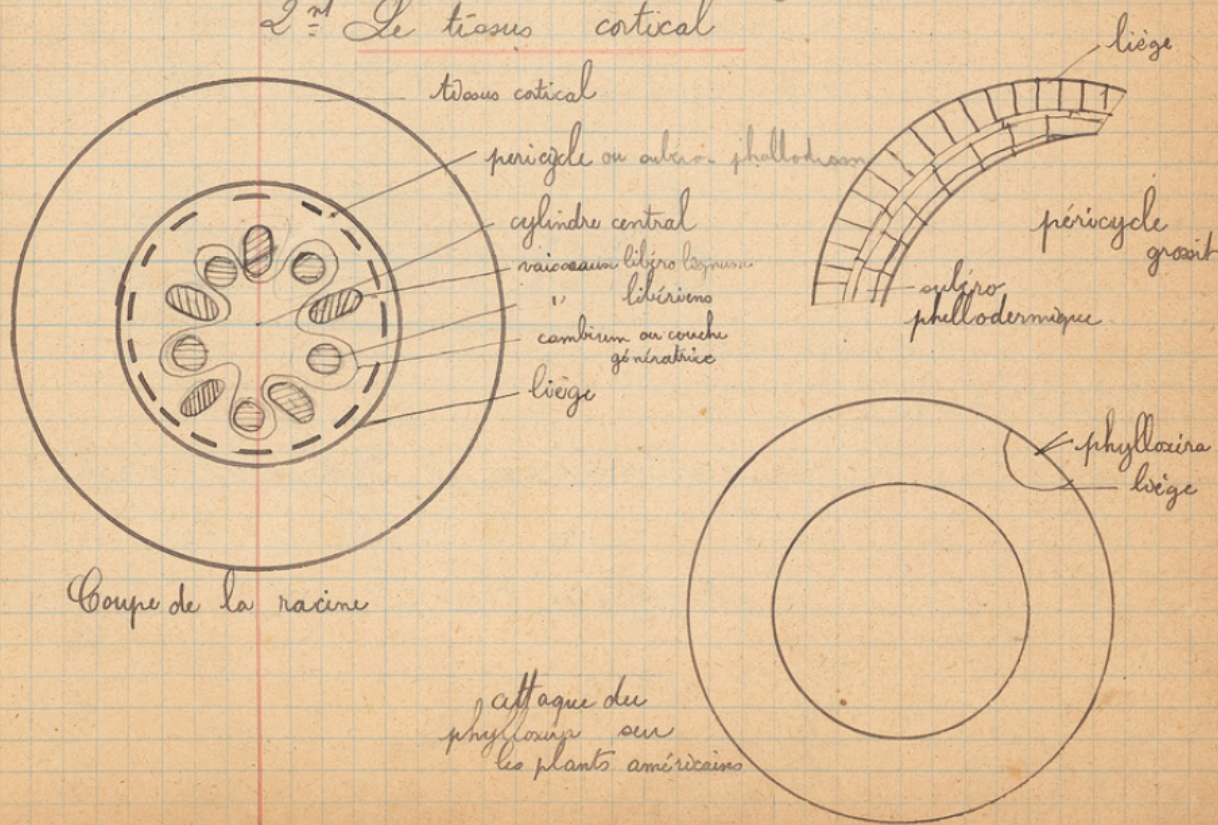 2nt Le tissus cortical
tissus cortical
pericycle ou subero-phellodism
cylindre central
vaisseaux libéro ligneux
" libériens
cambium ou couche
génératrice
liège
Coupe de la racine
liège
péricycle
grossit
subéro
phellodermique
phylloxéra
liège
attaque du
phylloxéra sur
les plants américains